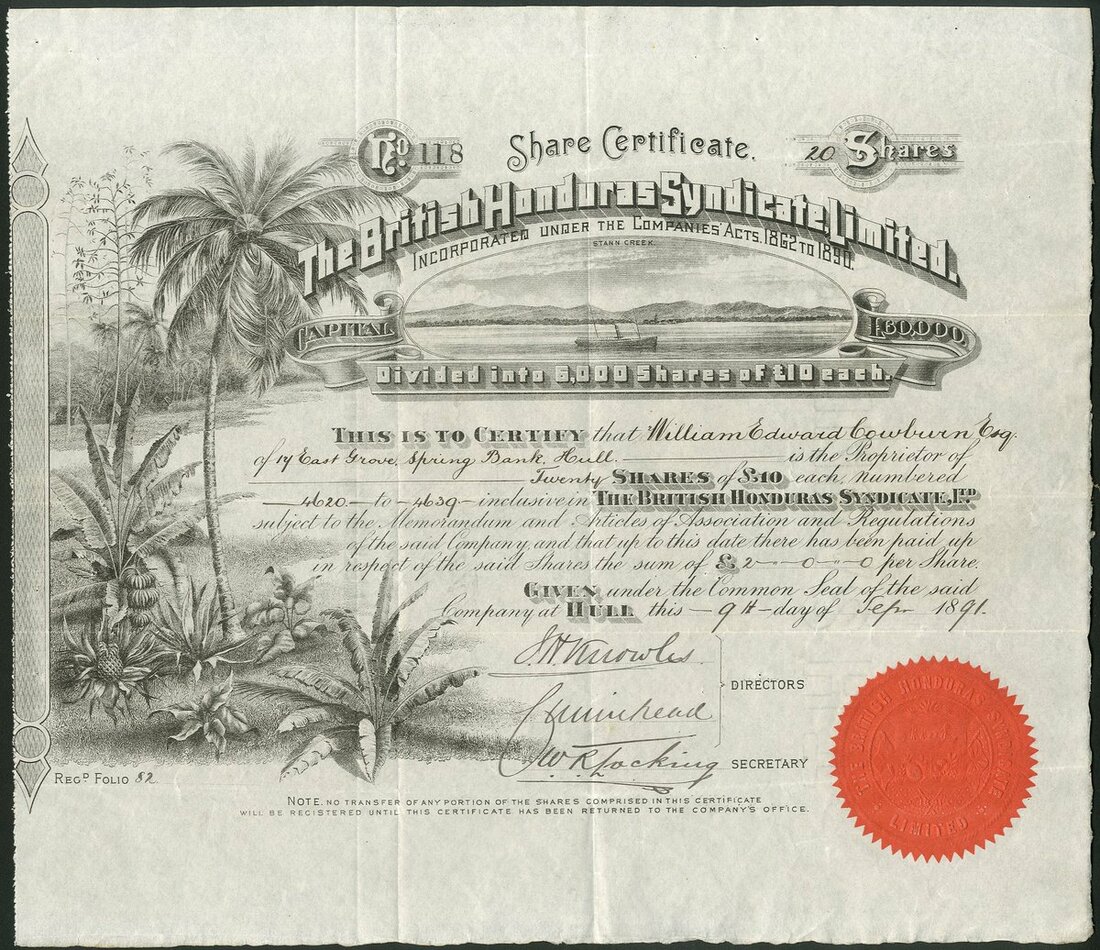 No. 118
Share Certificate.
20 Shares
The British Honduras Syndicate, Limited.
INCORPORATED UNDER THE COMPANIES' ACTS, 1862 TO 1890.
STANN CREEK.
CAPITAL £60,000.
Divided into 6,000 Shares of £10 each.
THIS IS TO CERTIFY that William Edward Cowburn Esq.
of 17 East Grove, Spring Bank, Hull. is the Proprietor of
Twenty SHARES of £10 each, numbered
4620 to 4639 inclusive in THE BRITISH HONDURAS SYNDICATE, LTD
subject to the Memorandum and Articles of Association and Regulations
of the said Company, and that up to this date there has been paid up
in respect of the said Shares the sum of £2 - 0 - 0 per Share.
GIVEN under the Common Seal of the said
Company at HULL this 9th day of Sepr 1891.
Knowles
Muirhead
DIRECTORS
W R Locking
SECRETARY
REGD FOLIO 82
NOTE. NO TRANSFER OF ANY PORTION OF THE SHARES COMPRISED IN THIS CERTIFICATE
WILL BE REGISTERED UNTIL THIS CERTIFICATE HAS BEEN RETURNED TO THE COMPANY'S OFFICE.
THE BRITISH HONDURAS SYNDICATE
LIMITED